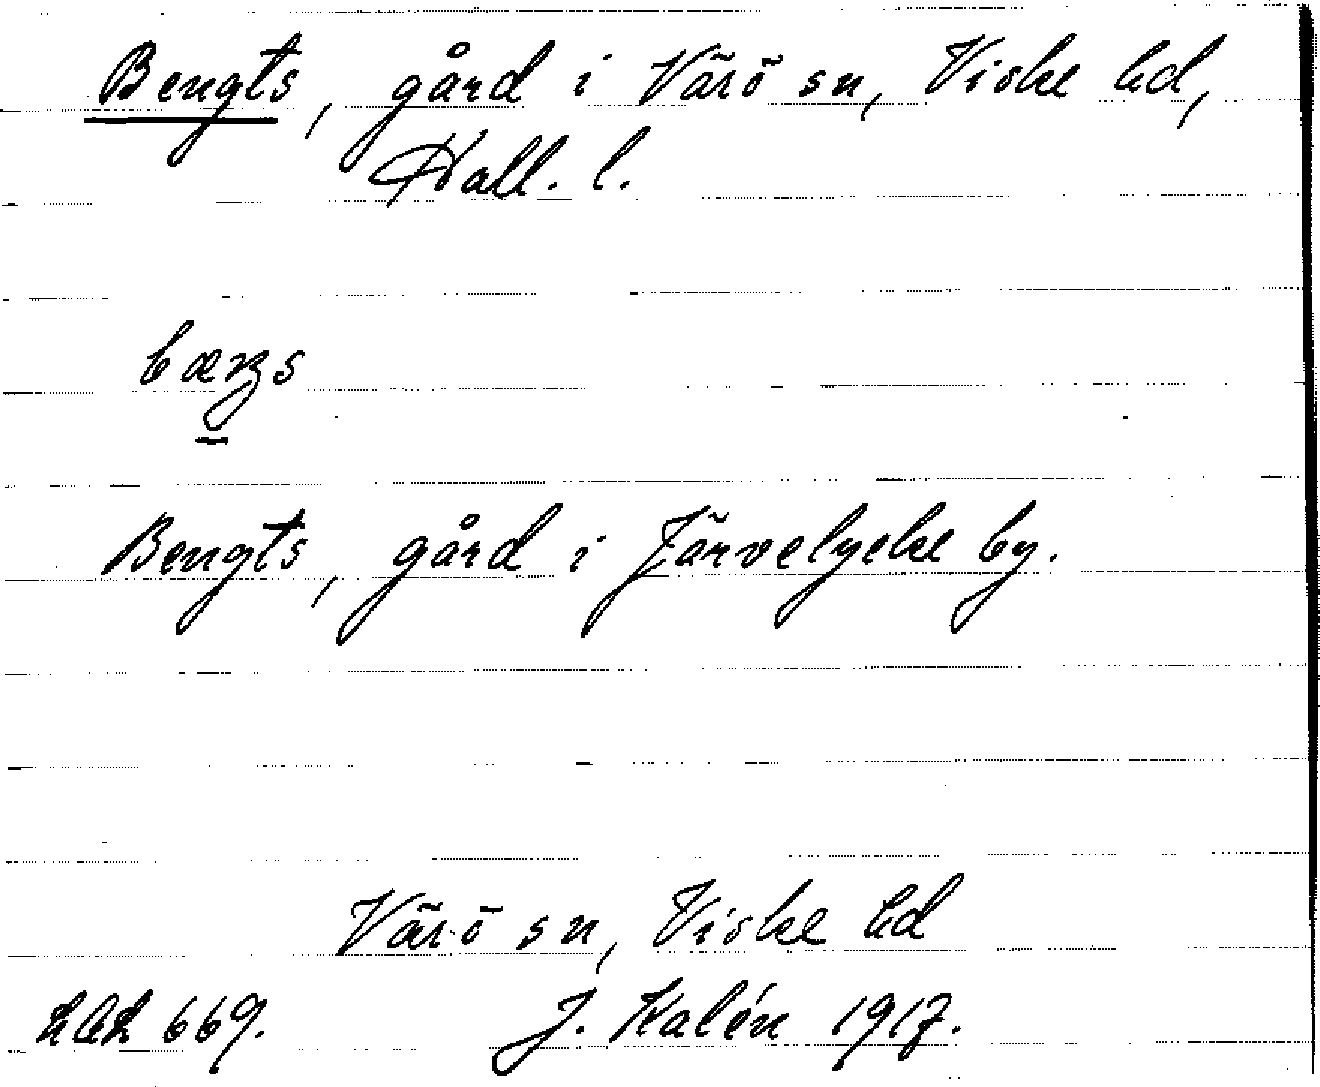 Bengts, gård i Värö sn, Viske hd,
Hall. l.
Bengts, gård i Järvelycke by.
Värö sn, Viske hd
669. J. Kalén 1917.